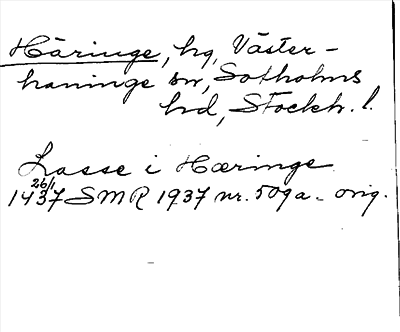 Häringe, hg, Väster-
haninge sn, Sotholms
hrd, Stockh. l.
Lasse i Hæringe
26/1
1437 SMR 1937 nr. 509a - orig.